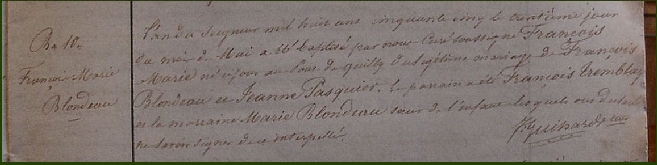 Bē 18.
François Marie
Blondeau
L'an du Seigneur mil huit cent cinquante cinq le trentième jour
du mois de Mai a été baptisé par nous Curé soussigné François
Marie né ce jour au de du légitime mariage de François
Blondeau et Jeanne Pasquier. le parrain a été François Tremblay
et la marraine Marie Blondeau sœur de l'enfant lesquels ont déclaré
ne savoir signer de ce interpellé.